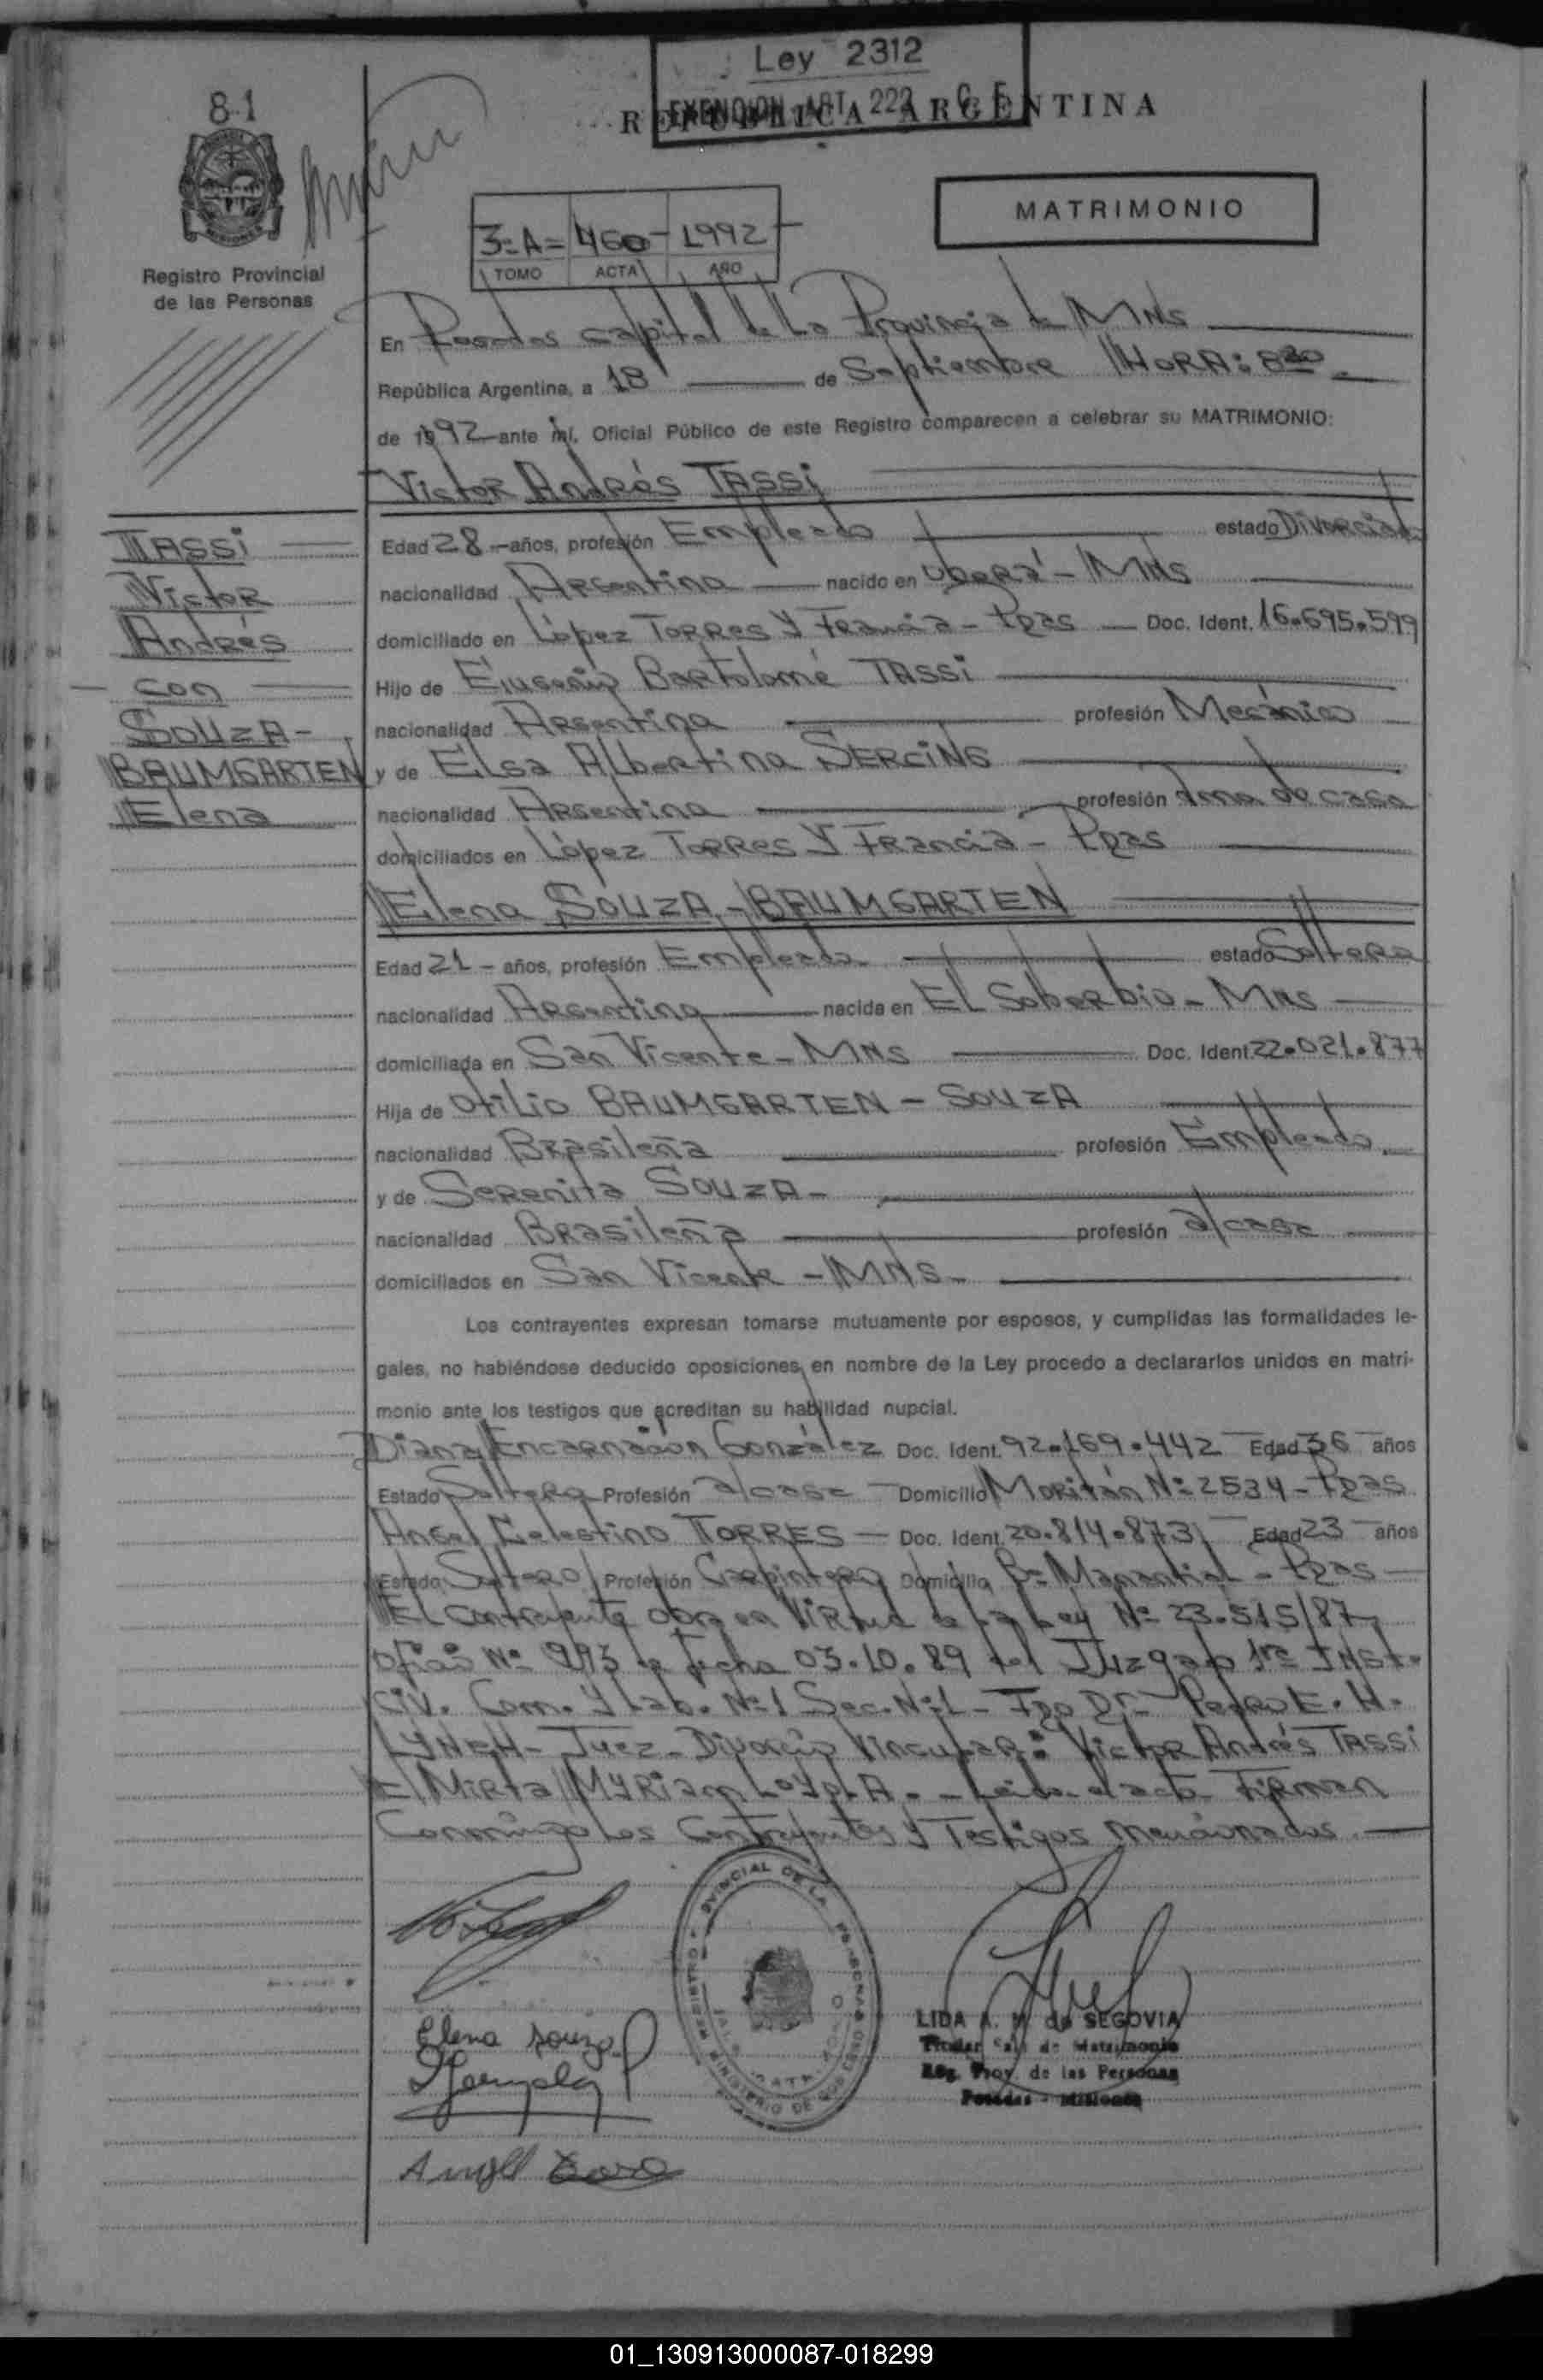 Ley 2312
EXENCION ART. 222 C. F.
REPUBLICA ARGENTINA
81
MATRIMONIO
3-A= 460- 1992
TOMO ACTA AÑO
Registro Provincial
de las Personas
En Posadas capital de la Provincia de MNS
República Argentina, a 18 de Septiembre HORA: 8 30
de 1992 ante mí, Oficial Público de este Registro comparecen a celebrar su MATRIMONIO:
Victor Andrés TASSi
TASSi
Victor
Andrés
con
SOUZA-
BAUMGARTEN
Elena
Edad 28 años, profesión Empleado estado Divorciado
nacionalidad Argentina nacido en Oberá - MNS
domiciliado en López Torres y Francia - Pdas Doc. Ident. 16.695.599
Hijo de Eugenio Bartolomé TASSi
nacionalidad Argentina profesión Mecánico
y de Elsa Albertina SERCiNG
nacionalidad Argentina profesión Ama de casa
domiciliados en López Torres y Francia - Pdas
Elena SOUZA-BAUMGARTEN
Edad 21 - años, profesión Empleada estado Soltera
nacionalidad Argentina nacida en El Soberbio - MNS
domiciliada en San Vicente - MNS Doc. Ident. 22.021.877
Hija de Otilio BAUMGARTEN - SOUZA
nacionalidad Brasileña profesión Empleado
y de Serenita SOUZA-
nacionalidad Brasileña profesión a/casa
domiciliados en San Vicente - MNS-
Los contrayentes expresan tomarse mutuamente por esposos, y cumplidas las formalidades le-
gales, no habiéndose deducido oposiciones, en nombre de la Ley procedo a declararlos unidos en matri-
monio ante los testigos que acreditan su habilidad nupcial.
Diana Encarnación González Doc. Ident. 92.169.442 Edad 36 años
Estado Soltera Profesión a/casa Domicilio Moritán Nº 2534 - Pdas
Angel Celestino TORRES - Doc. Ident. 20.814.873 Edad 23 años
Estado Soltero Profesión Carpintero Domicilio Bº Manantial - Pdas
El Contrayente obra en Virtud de la Ley Nº 23.515/87,
Oficio Nº 993 de fecha 03.10.89 del Juzgado 1ra Inst.
Civ. Com. y Lab. Nº1 Sec. Nº1 - Fdo Dr. Pedro E. H.
LYNCH - Juez - Divorcio Vincular: Victor Andrés TASSi
E/Mirta Myriam LOYOLA. - Leida el acta Firman
Conmigo los Contrayentes y Testigos mencionados.
PROVINCIAL DE LAS PERSONAS
MINISTERIO DE GOBIERNO
Elena Souza
González
Angel
LIDA A. M. de SEGOVIA
Titular Sala de Matrimonio
Reg. Prov. de las Personas
Posadas - Misiones
01_130913000087-018299